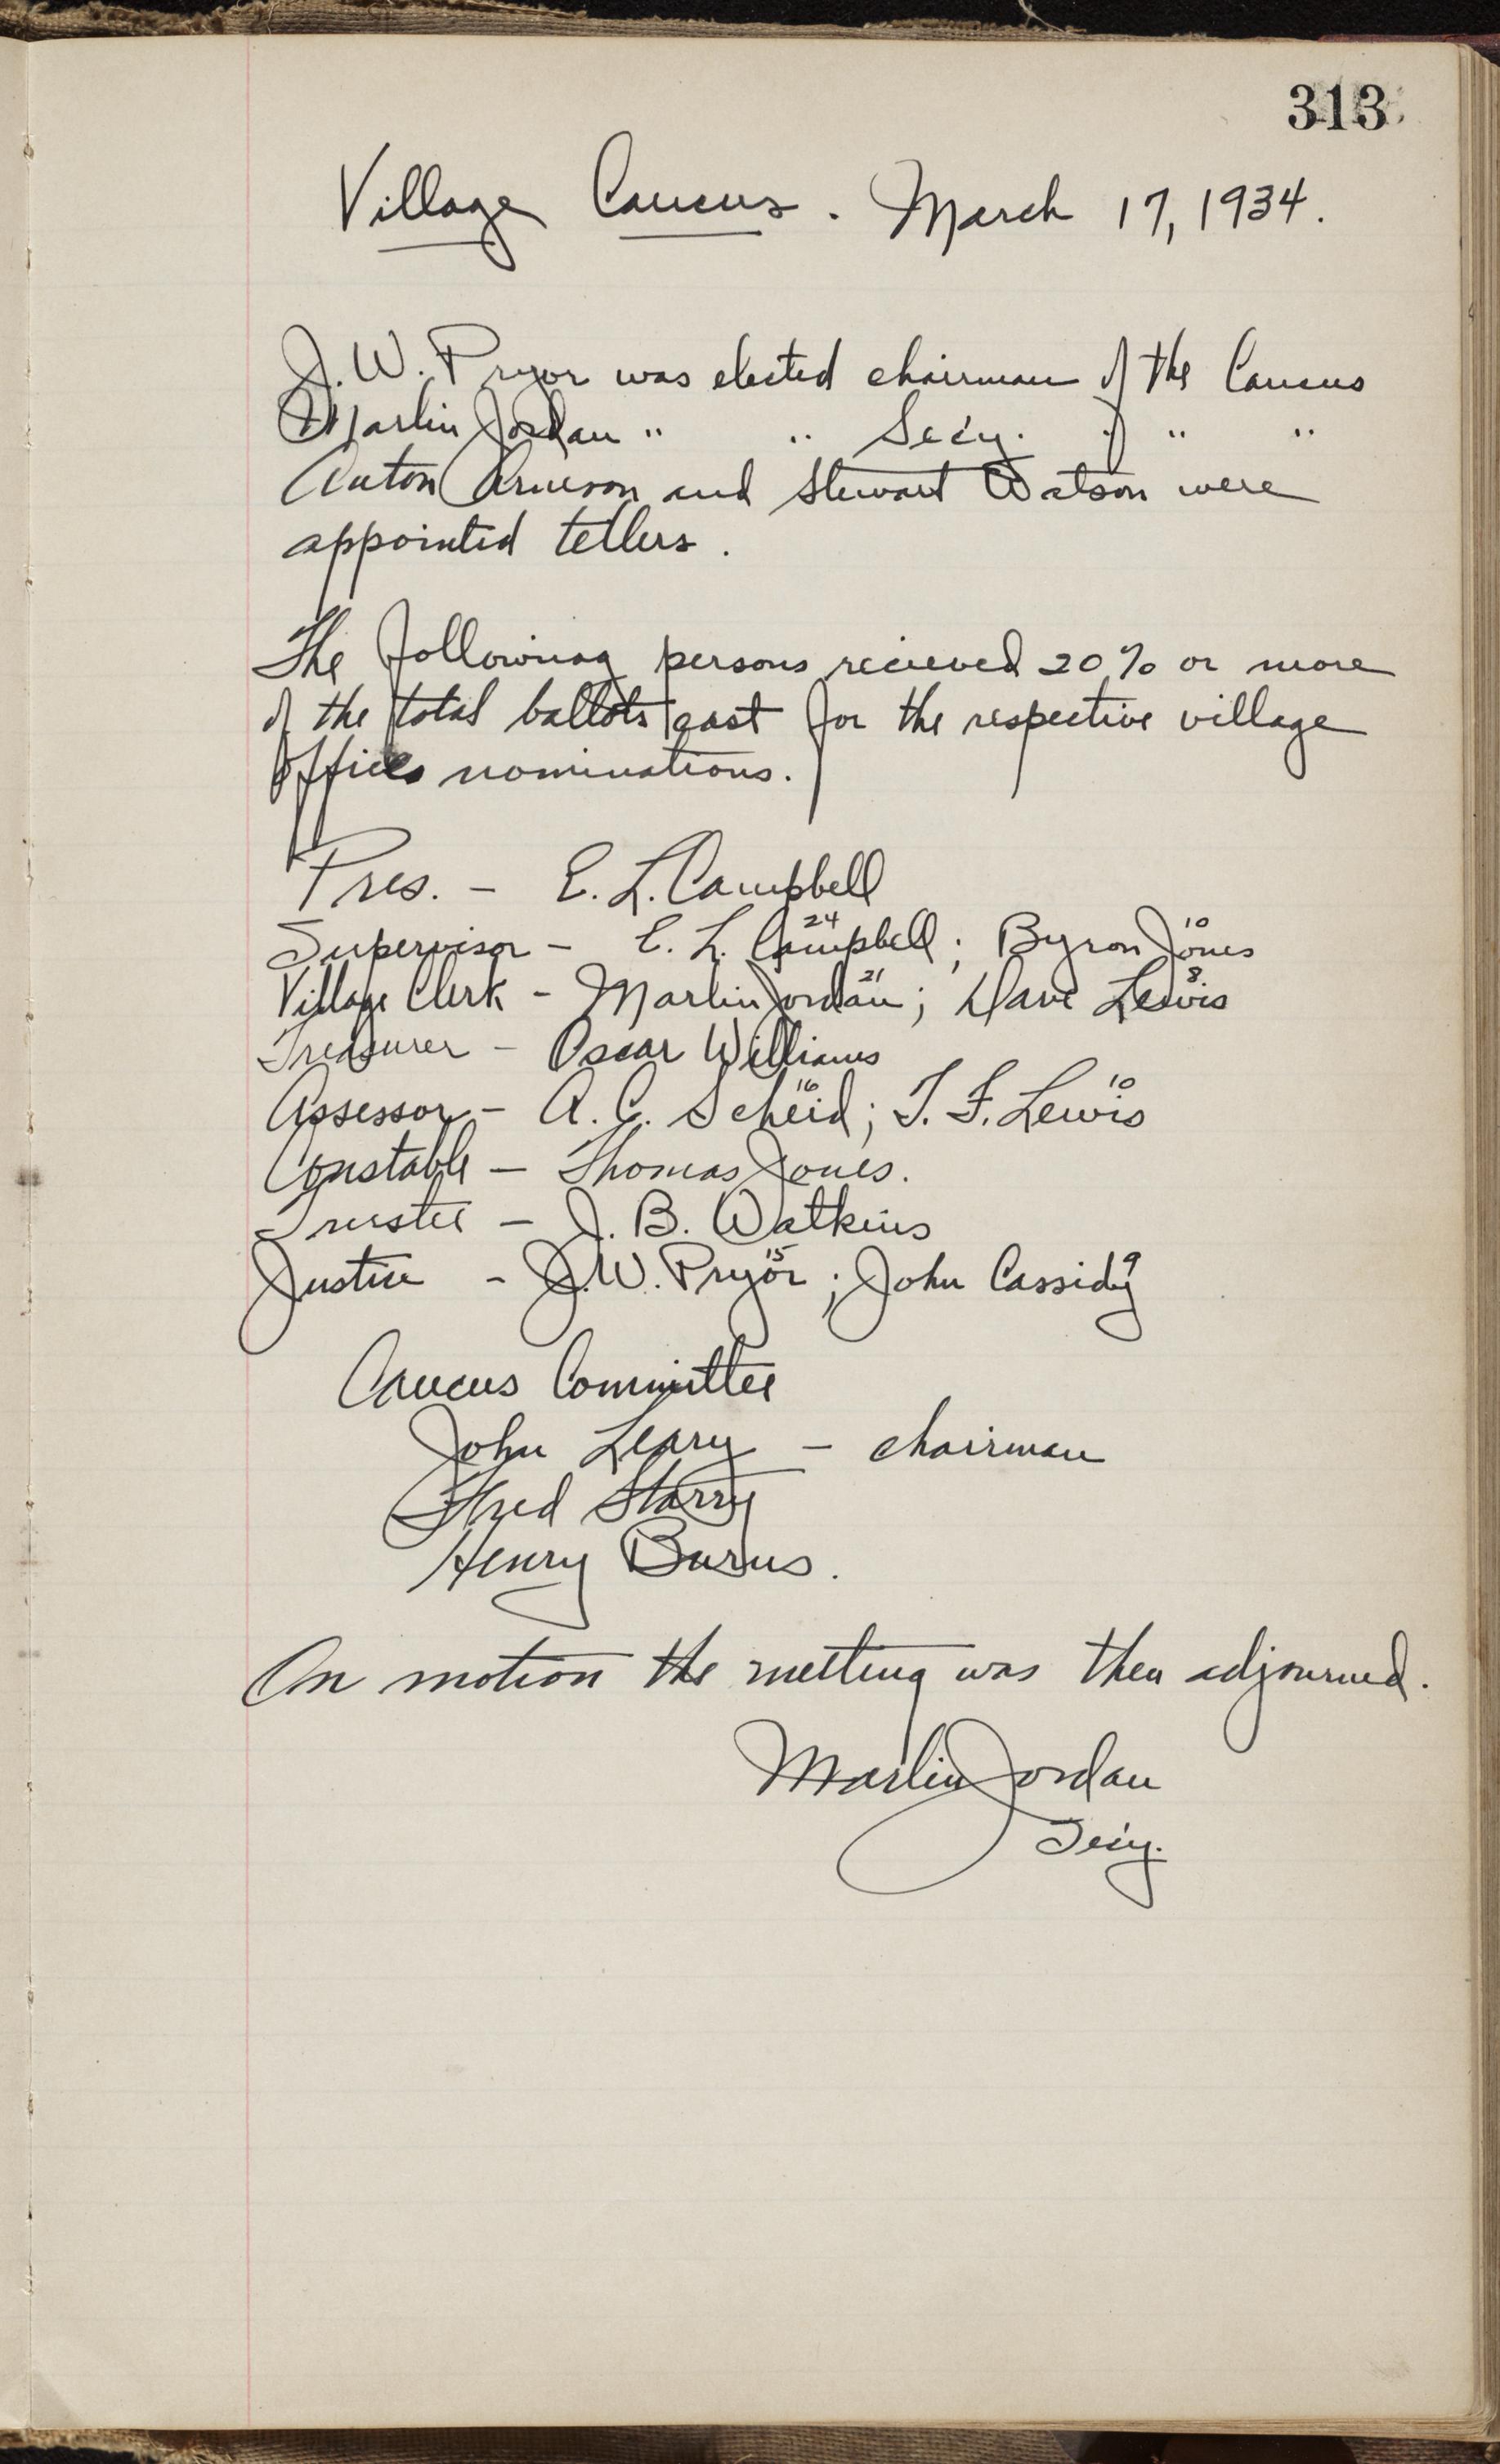 313
Village Caucus. March 17, 1934.
J. W. Pryor was elected chairman of the Caucus
Marlin Jordan " " Secy. of " "
Anton Arneson and Stewart Watson were
appointed tellers.
The following persons recieved 20% or more
of the total ballots cast for the respective village
offices nominations.
Pres. - E. L. Campbell
Supervisor - E. L. Campbell 24; Byron Jones 10
Village Clerk - Marlin Jordan 21; Dave Lewis 8
Treasurer - Oscar Williams
Assessor - A. C. Scheid 16; T. F. Lewis 10
Constable - Thomas Jones.
Trustee - J. B. Watkins
Justice - J. W. Pryor 15; John Cassidy 9
Caucus Committee
John Leary - chairman
Fred Starry
Henry Burns.
On motion the meeting was then adjourned.
Marlin Jordan
Secy.